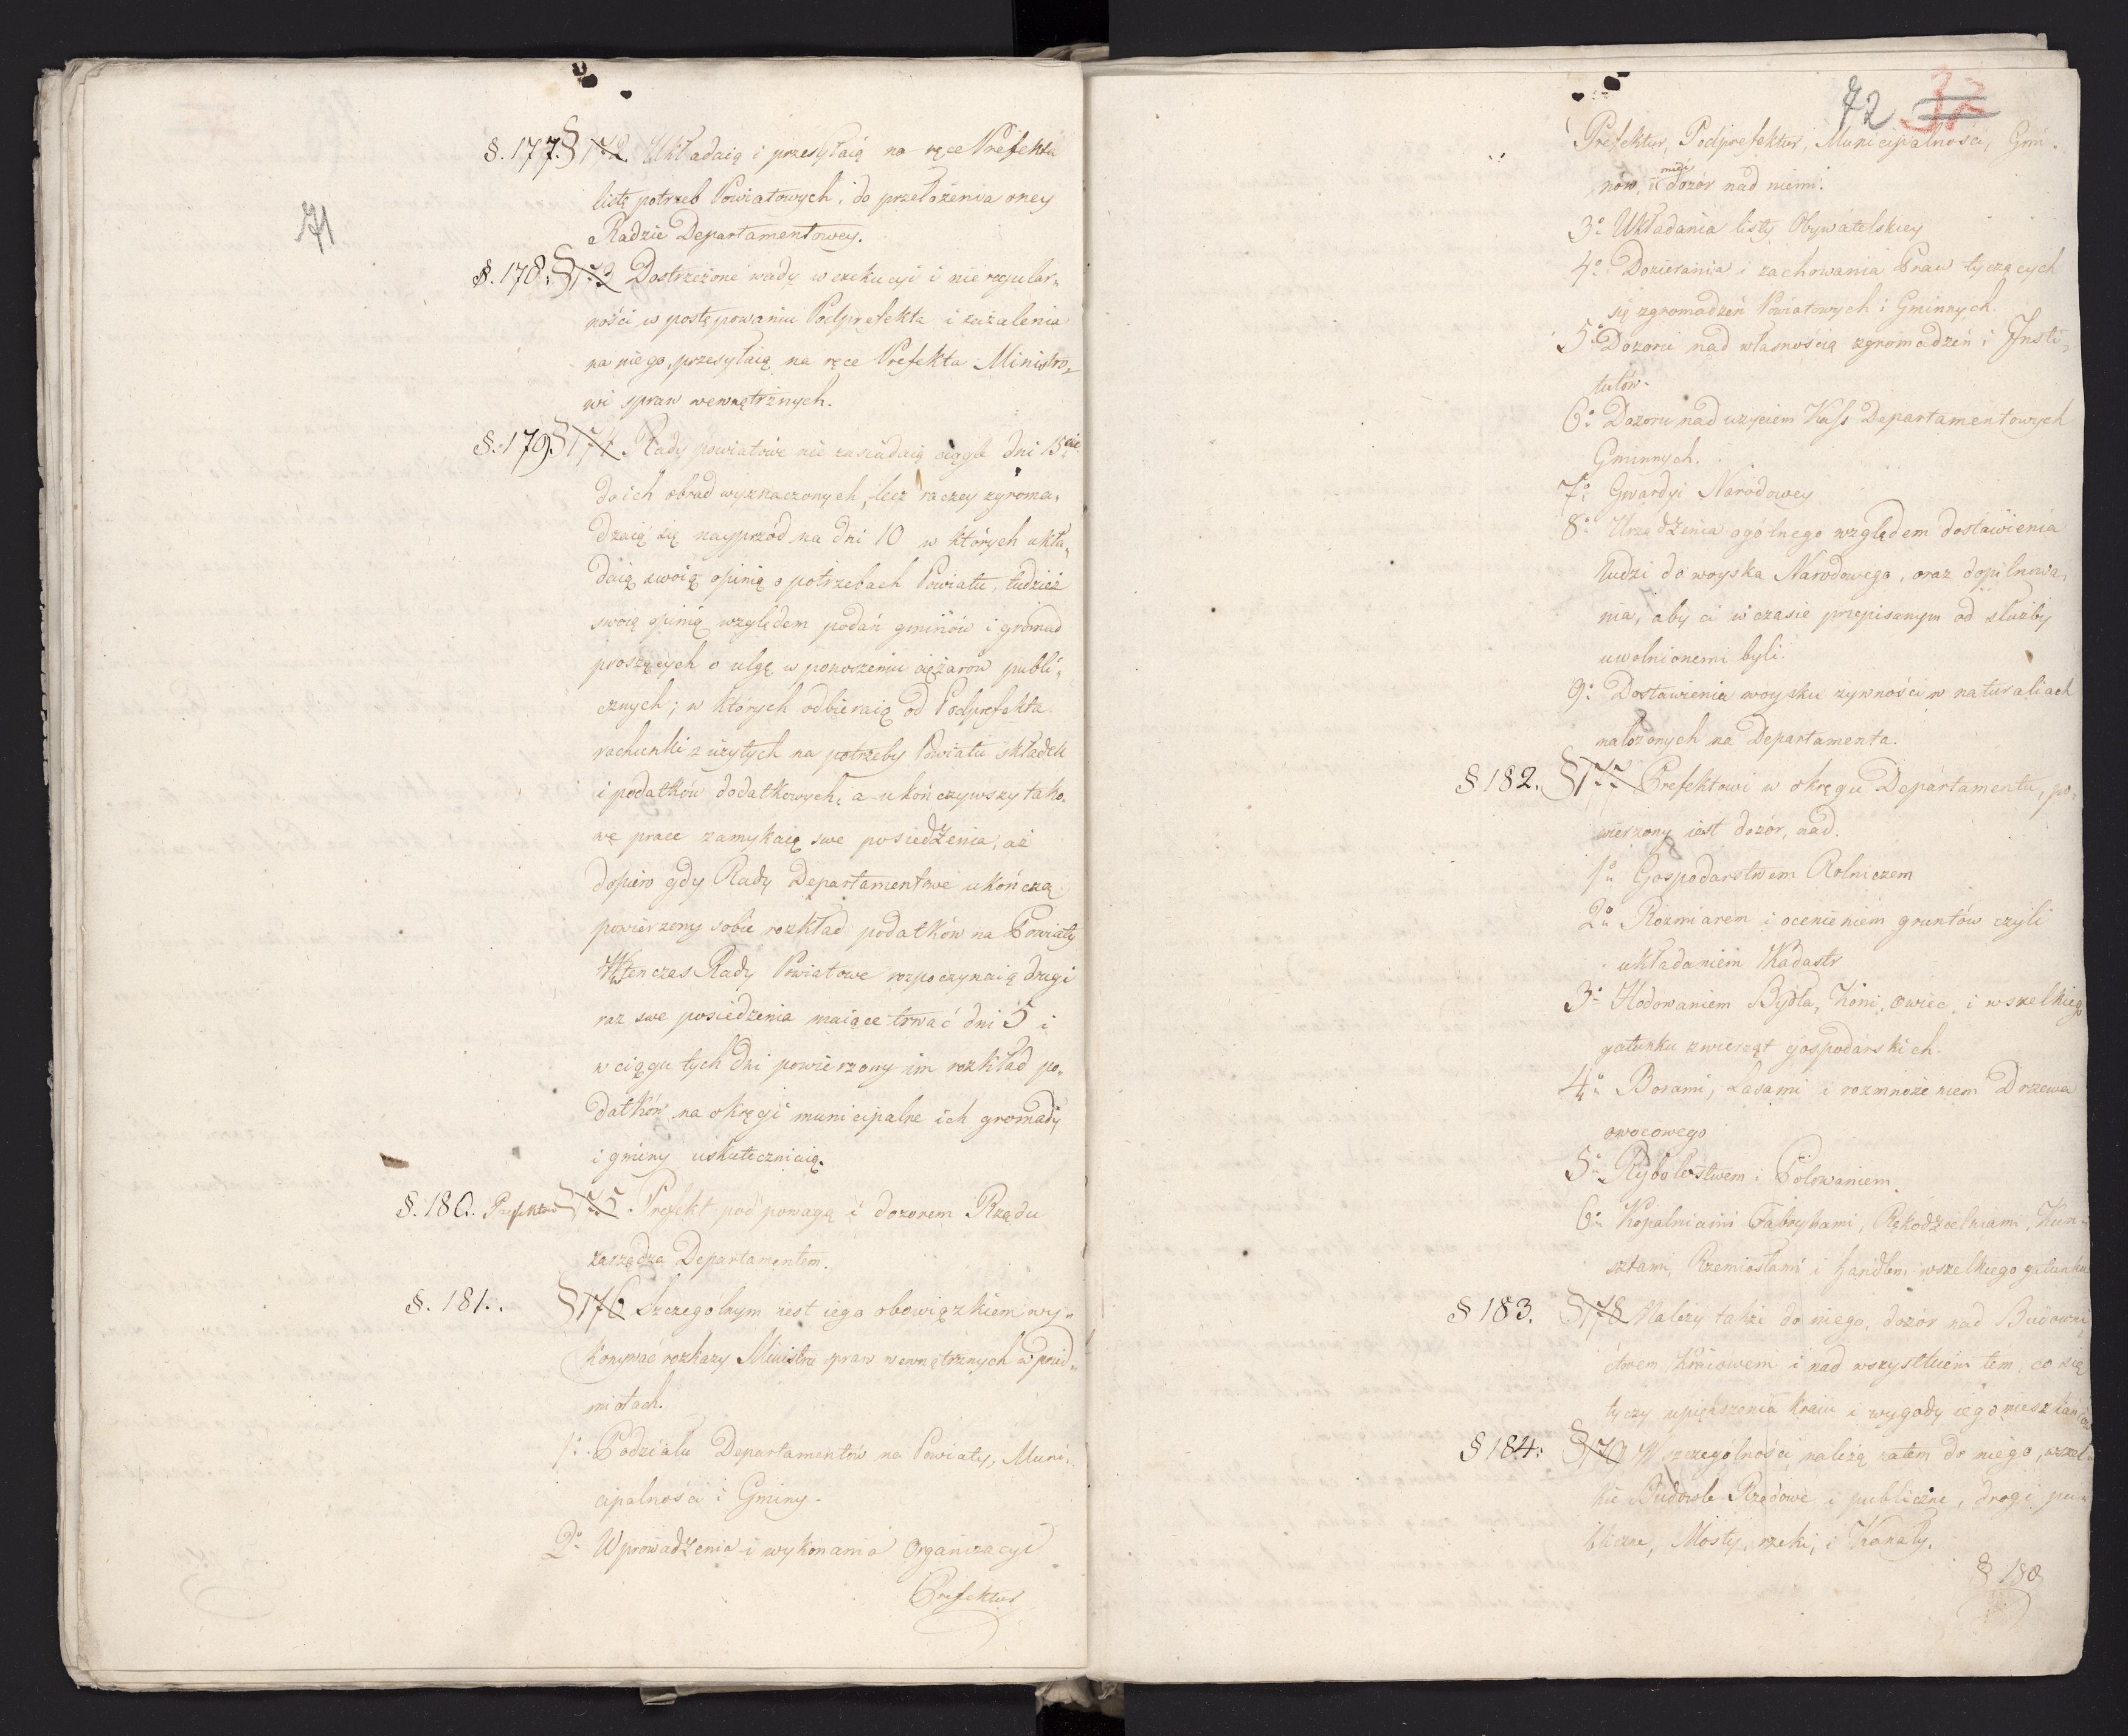 71
§. 177. § 172. Układaią i przesyłaią na ręce Prefekta
listę potrzeb Powiatowych, do przełożenia oney
Radzie Departamentowey.
§. 178. § 173 Dostrzeżone wady w exekucyi i nie regular„
ności w postępowaniu Podprefekta i zażalenia
na niego, przesyłaią na ręce Prefekta Ministro„
wi spraw wewnętrznych.
§. 179. § 174. Rady powiatowe nie zasiadaią ciągle dni 15cie
do ich obrad wyznaczonych, lecz raczey zgroma„
dzaią się nayprzód na dni 10 w których ukła„
daią swoię opinię o potrzebach Powiatu, tudzież
swoią opinię względem podań gminów i gromad
proszących o ulgę w ponoszeniu ciężarów publi„
cznych; w których odbieraią od Podprefekta
rachunki z użytych na potrzeby Powiatu składek
i podatków dodatkowych, a ukończywszy tako„
we prace zamykaią swe posiedzenia, aż
dopiero gdy Rady Departamentowe ukończą
powierzony sobie rozkład podatków na Powiaty
Wtenczas Rady Powiatowe rozpoczynaią drugi
raz swe posiedzenia maiące trwać dni 5 i
w ciągu tych dni powierzony im rozkład po„
datków na okręgi municipalne ich gromady
i gminy uskuteczniaią.
§. 180. Prefektura § 175. Prefekt pod powagą i dozorem Rządu
zarządza Departamentem.
§. 181. § 176 Szczególnym iest iego obowiązkiem wy„
konywać rozkazy Ministra spraw wewnętrznych w przed„
miotach.
1o Podziału Departamentów na Powiaty, Muni„
cipalności i Gminy.
2o Wprowadzenia i wykonania Organizacyi
Prefektur
72 32
Prefektur, Podprefektur, Municipalności, Gmi„
nów, i mieć dozór nad niemi.
3o Układania listy Obywatelskiey
4o Dozierania i zachowania Praw tyczących
się zgromadzeń Powiatowych i Gminnych.
5o Dozoru nad własnością zgromadzeń i Insti„
tutów.
6o Dozoru nad użyciem Kass Departamentowych
Gminnych.
7o Gwardyi Narodowey
8o Urządzenia ogólnego względem dostawienia
ludzi do woyska Narodowego, oraz dopilnowa„
nia, aby ci w czasie przepisanym od służby
uwolnionemi byli.
9o Dostawienia woysku żywności w naturaliach
nałożonych na Departamenta.
§ 182. § 177 Prefektowi w okręgu Departamentu, po„
wierzony iest dozór, nad.
1o Gospodarstwem Rolniczem
2o Rozmiarem i ocenieniem gruntów czyli
układaniem Kadastr
3o Hodowaniem Bydła, Koni, owiec, i wszelkiego
gatunku zwierząt gospodarskich.
4o Borami, Lasami i rozmnożeniem Drzewa
owocowego
5o Rybołostwem i Polowaniem.
6o Kopalniami Fabrykami, Rękodzielniami, Kun„
sztami, Rzemiosłami i handlem wszelkiego gatunku
§ 183. § 178 Należy także do niego, dozor nad Budowni„
ctwem Kraiowem i nad wszystkiem tem, co się
tyczy upiększenia Kraiu i wygody iego mieszkańców
§ 184. § 179 W szczególności należą zatem do niego, wszel„
kie Budowle Rządowe i publiczne, drogi pu„
bliczne, Mosty, rzeki, i Kanały.
§ 180